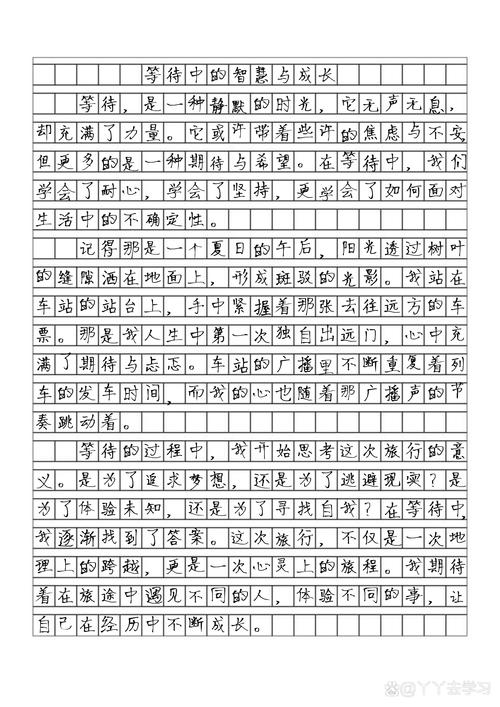 等待中的智慧与成长
等待，是一种静默的时光，它无声无息，
却充满了力量。它或许带着些许的焦虑与不安，
但更多的是一种期待与希望。在等待中，我们
学会了耐心，学会了坚持，更学会了如何面对
生活中的不确定性。
记得那是一个夏日的午后，阳光透过树叶
的缝隙洒在地面上，形成斑驳的光影。我站在
车站的站台上，手中紧握着那张去往远方的车
票。那是我人生中第一次独自出远门，心中充
满了期待与忐忑。车站的广播里不断重复着列
车的发车时间，而我的心也随着那广播声的节
奏跳动着。
等待的过程中，我开始思考这次旅行的意
义。是为了追求梦想，还是为了逃避现实？是
为了体验未知，还是为了寻找自我？在等待中，
我逐渐找到了答案。这次旅行，不仅是一次地
理上的跨越，更是一次心灵上的旅程。我期待
着在旅途中遇见不同的人，体验不同的事，让
自己在经历中不断成长。
@丫丫去学习